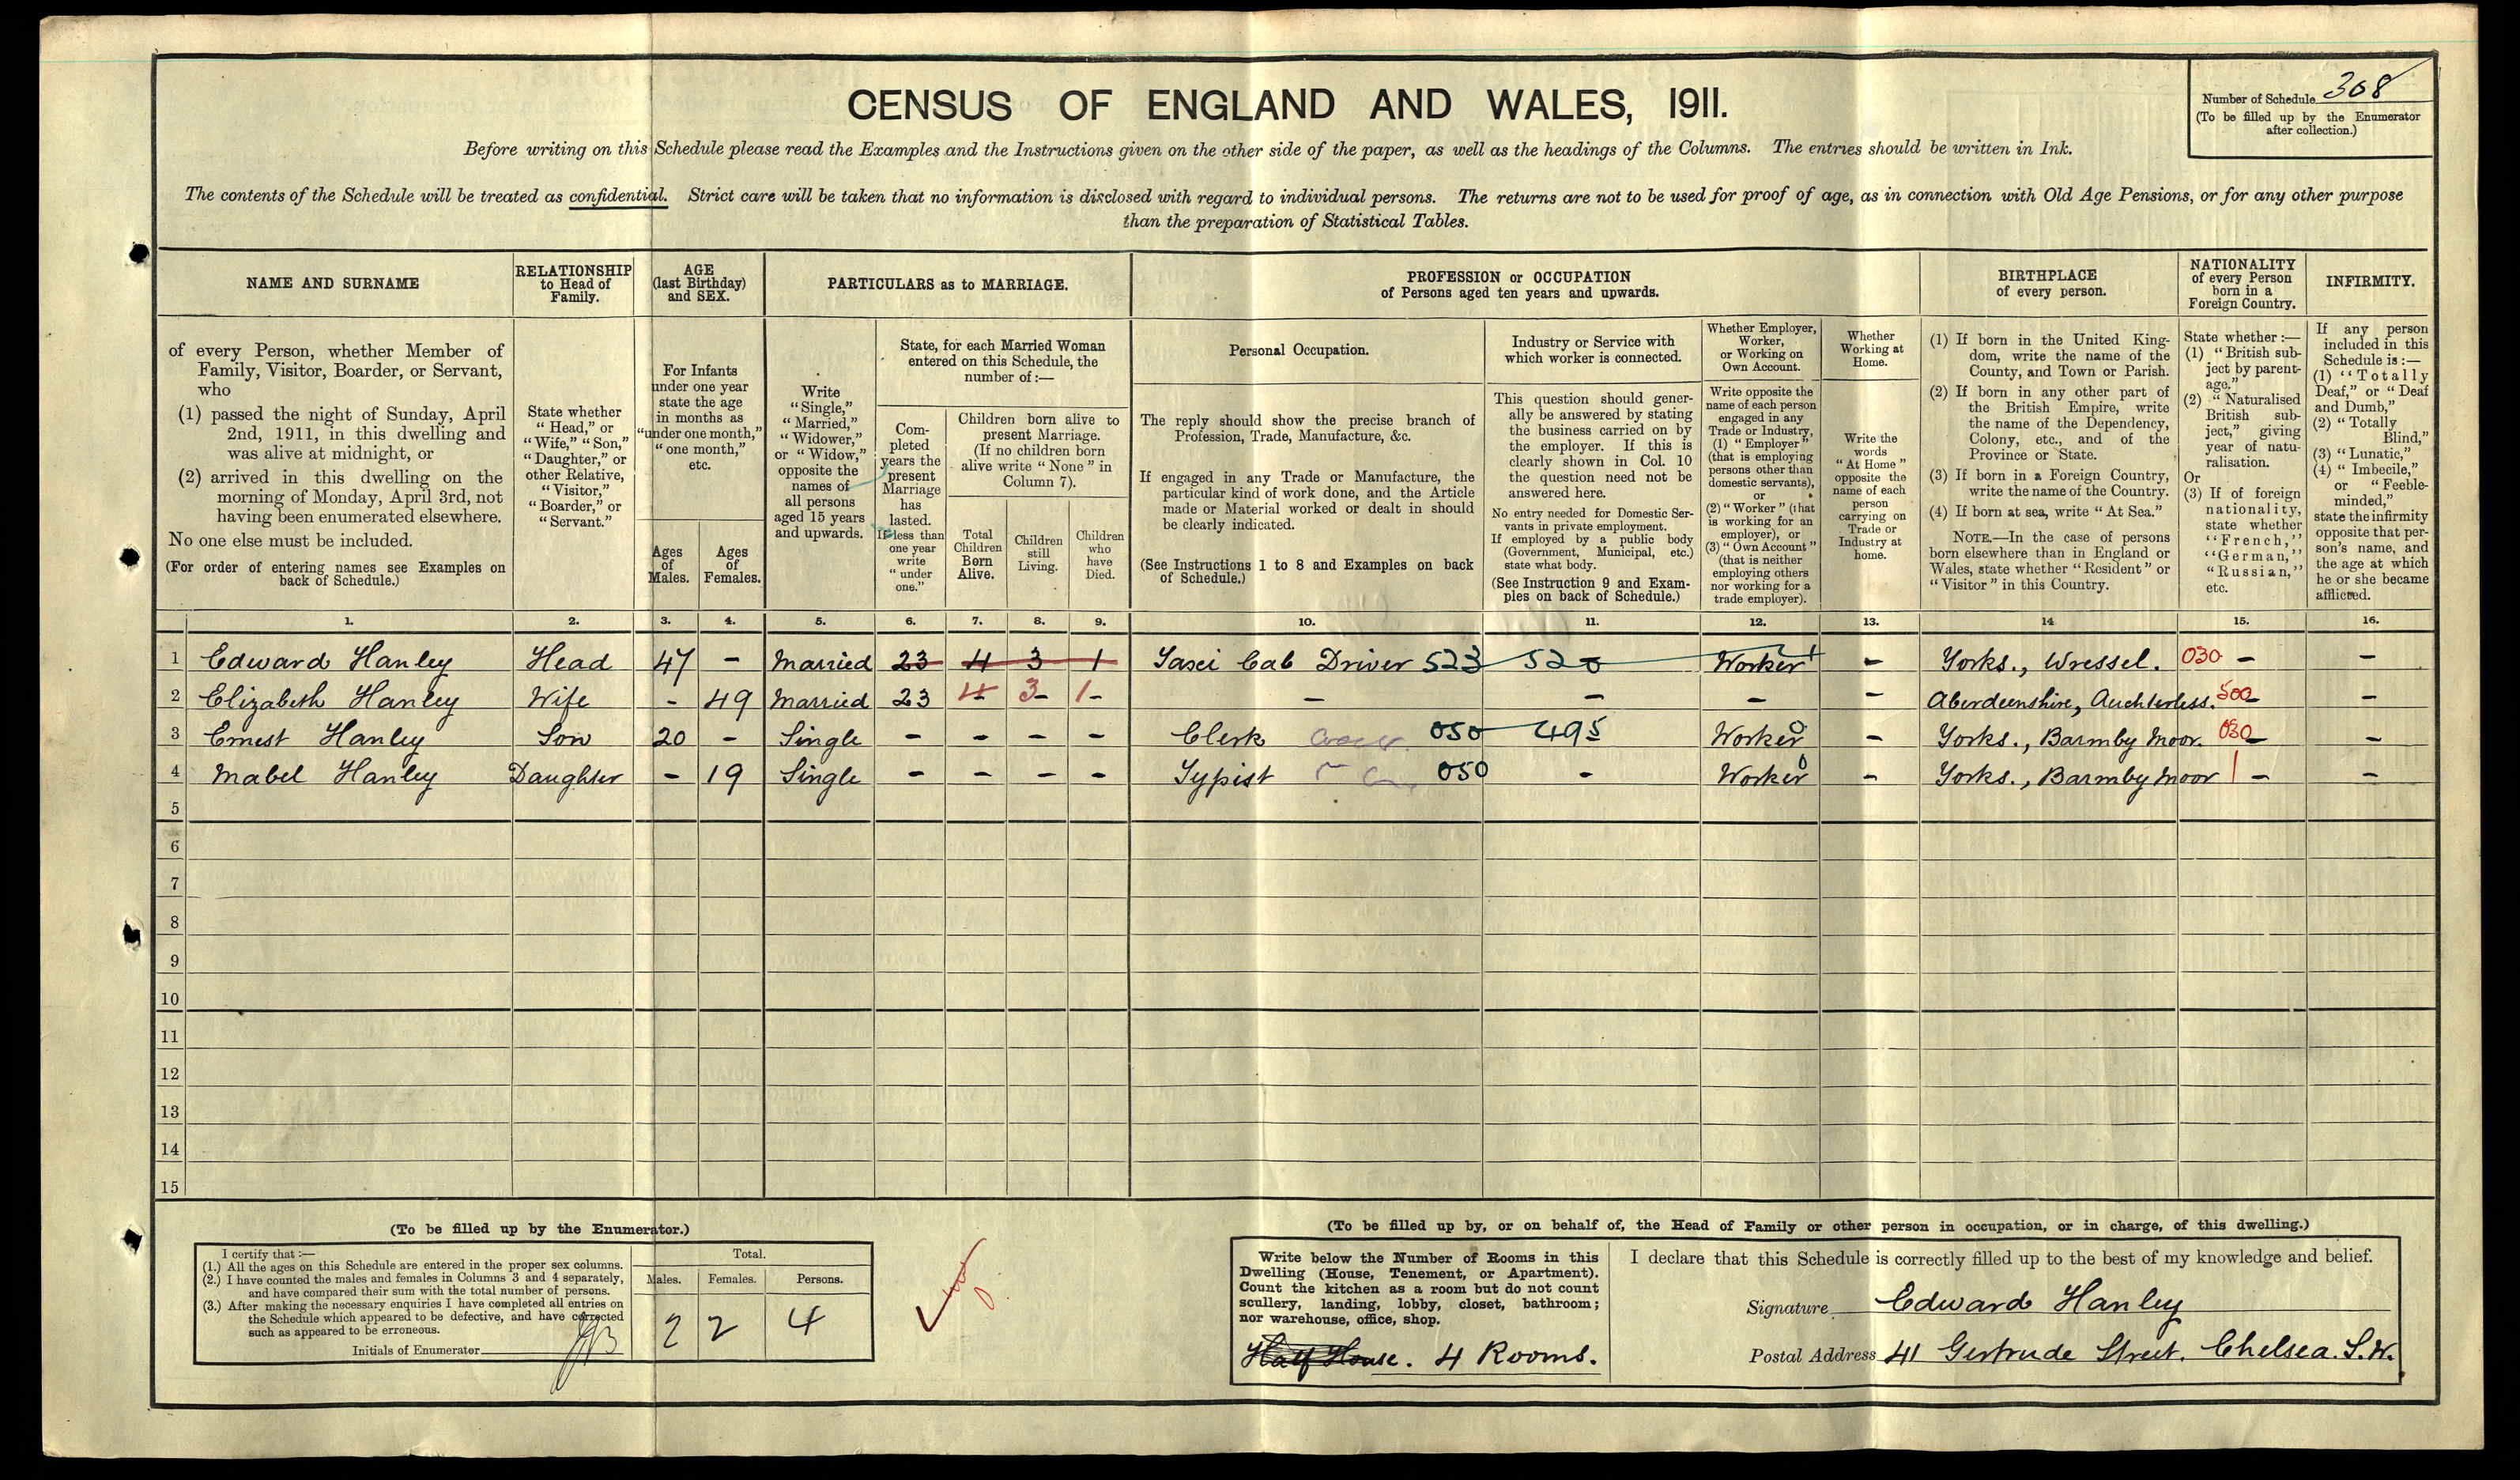 CENSUS OF ENGLAND AND WALES, 1911.
Number of Schedule 308
(To be filled up by the Enumerator
after collection.)
Before writing on this Schedule please read the Examples and the Instructions given on the other side of the paper, as well as the headings of the Columns. The entries should be written in Ink.
The contents of the Schedule will be treated as confidential. Strict care will be taken that no information is disclosed with regard to individual persons. The returns are not to be used for proof of age, as in connection with Old Age Pensions, or for any other purpose
than the preparation of Statistical Tables.
NAME AND SURNAME
of every Person, whether Member of
Family, Visitor, Boarder, or Servant,
who
(1) passed the night of Sunday, April
2nd, 1911, in this dwelling and
was alive at midnight, or
(2) arrived in this dwelling on the
morning of Monday, April 3rd, not
having been enumerated elsewhere.
No one else must be included.
(For order of entering names see Examples on
back of Schedule.)
RELATIONSHIP
to Head of
Family.
State whether
"Head," or
"Wife," "Son,"
"Daughter," or
other Relative,
"Visitor,"
"Boarder," or
"Servant."
AGE
(last Birthday)
and SEX.
For Infants
under one year
state the age
in months as
"under one month,"
"one month,"
etc.
Ages
of
Males.
Ages
of
Females.
PARTICULARS as to MARRIAGE.
Write
"Single,"
"Married,"
"Widower,"
or "Widow,"
opposite the
names of
all persons
aged 15 years
and upwards.
State, for each Married Woman
entered on this Schedule, the
number of:—
Com-
pleted
years the
present
Marriage
has
lasted.
If less than
one year
write
"under
one."
Children born alive to
present Marriage.
(If no children born
alive write "None" in
Column 7).
Total
Children
Born
Alive.
Children
still
Living.
Children
who
have
Died.
PROFESSION or OCCUPATION
of Persons aged ten years and upwards.
Personal Occupation.
The reply should show the precise branch of
Profession, Trade, Manufacture, &c.
If engaged in any Trade or Manufacture, the
particular kind of work done, and the Article
made or Material worked or dealt in should
be clearly indicated.
(See Instructions 1 to 8 and Examples on back
of Schedule.)
Industry or Service with
which worker is connected.
This question should gener-
ally be answered by stating
the business carried on by
the employer. If this is
clearly shown in Col. 10
the question need not be
answered here.
No entry needed for Domestic Ser-
vants in private employment.
If employed by a public body
(Government, Municipal, etc.)
state what body.
(See Instruction 9 and Exam-
ples on back of Schedule.)
Whether Employer,
Worker,
or Working on
Own Account.
Write opposite the
name of each person
engaged in any
Trade or Industry,
(1) "Employer"
(that is employing
persons other than
domestic servants),
or
(2) "Worker" (that
is working for an
employer), or
(3) "Own Account"
(that is neither
employing others
nor working for a
trade employer).
Whether
Working at
Home.
Write the
words
"At Home"
opposite the
name of each
person
carrying on
Trade or
Industry at
home.
BIRTHPLACE
of every person.
(1) If born in the United King-
dom, write the name of the
County, and Town or Parish.
(2) If born in any other part of
the British Empire, write
the name of the Dependency,
Colony, etc., and of the
Province or State.
(3) If born in a Foreign Country,
write the name of the Country.
(4) If born at sea, write "At Sea."
NOTE.—In the case of persons
born elsewhere than in England or
Wales, state whether "Resident" or
"Visitor" in this Country.
NATIONALITY
of every Person
born in a
Foreign Country.
State whether:—
(1) "British sub-
ject by parent-
age."
(2) "Naturalised
British sub-
ject," giving
year of natu-
ralisation.
Or
(3) If of foreign
nationality,
state whether
"French,"
"German,"
"Russian,"
etc.
INFIRMITY.
If any person
included in this
Schedule is:—
(1) "Totally
Deaf," or "Deaf
and Dumb,"
(2) "Totally
Blind,"
(3) "Lunatic,"
(4) "Imbecile,"
or "Feeble-
minded,"
state the infirmity
opposite that per-
son's name, and
the age at which
he or she became
afflicted.
1. 2. 3. 4. 5. 6. 7. 8. 9. 10. 11. 12. 13. 14 15. 16.
1 Edward Hanley Head 47 – Married 23 4 3 1 Taxi Cab Driver 523 520 Worker 1 – Yorks., Wressel. 030 – –
2 Elizabeth Hanley Wife – 49 Married 23 4 3 1 – – – – Aberdeenshire, Auchterless. 500 –
3 Ernest Hanley Son 20 – Single – – – – Clerk 050 495 Worker 0 – Yorks., Barmby Moor. 030 – –
4 Mabel Hanley Daughter – 19 Single – – – – Typist 050 – Worker 0 – Yorks., Barmby Moor – –
5
6
7
8
9
10
11
12
13
14
15
(To be filled up by the Enumerator.)
I certify that:—
(1.) All the ages on this Schedule are entered in the proper sex columns.
(2.) I have counted the males and females in Columns 3 and 4 separately,
and have compared their sum with the total number of persons.
(3.) After making the necessary enquiries I have completed all entries on
the Schedule which appeared to be defective, and have corrected
such as appeared to be erroneous.
Initials of Enumerator
Total.
Males. Females. Persons.
2 2 4
(To be filled up by, or on behalf of, the Head of Family or other person in occupation, or in charge, of this dwelling.)
Write below the Number of Rooms in this
Dwelling (House, Tenement, or Apartment).
Count the kitchen as a room but do not count
scullery, landing, lobby, closet, bathroom;
nor warehouse, office, shop.
Half House. 4 Rooms.
I declare that this Schedule is correctly filled up to the best of my knowledge and belief.
Signature Edward Hanley
Postal Address 41 Gertrude Street. Chelsea. S.W.